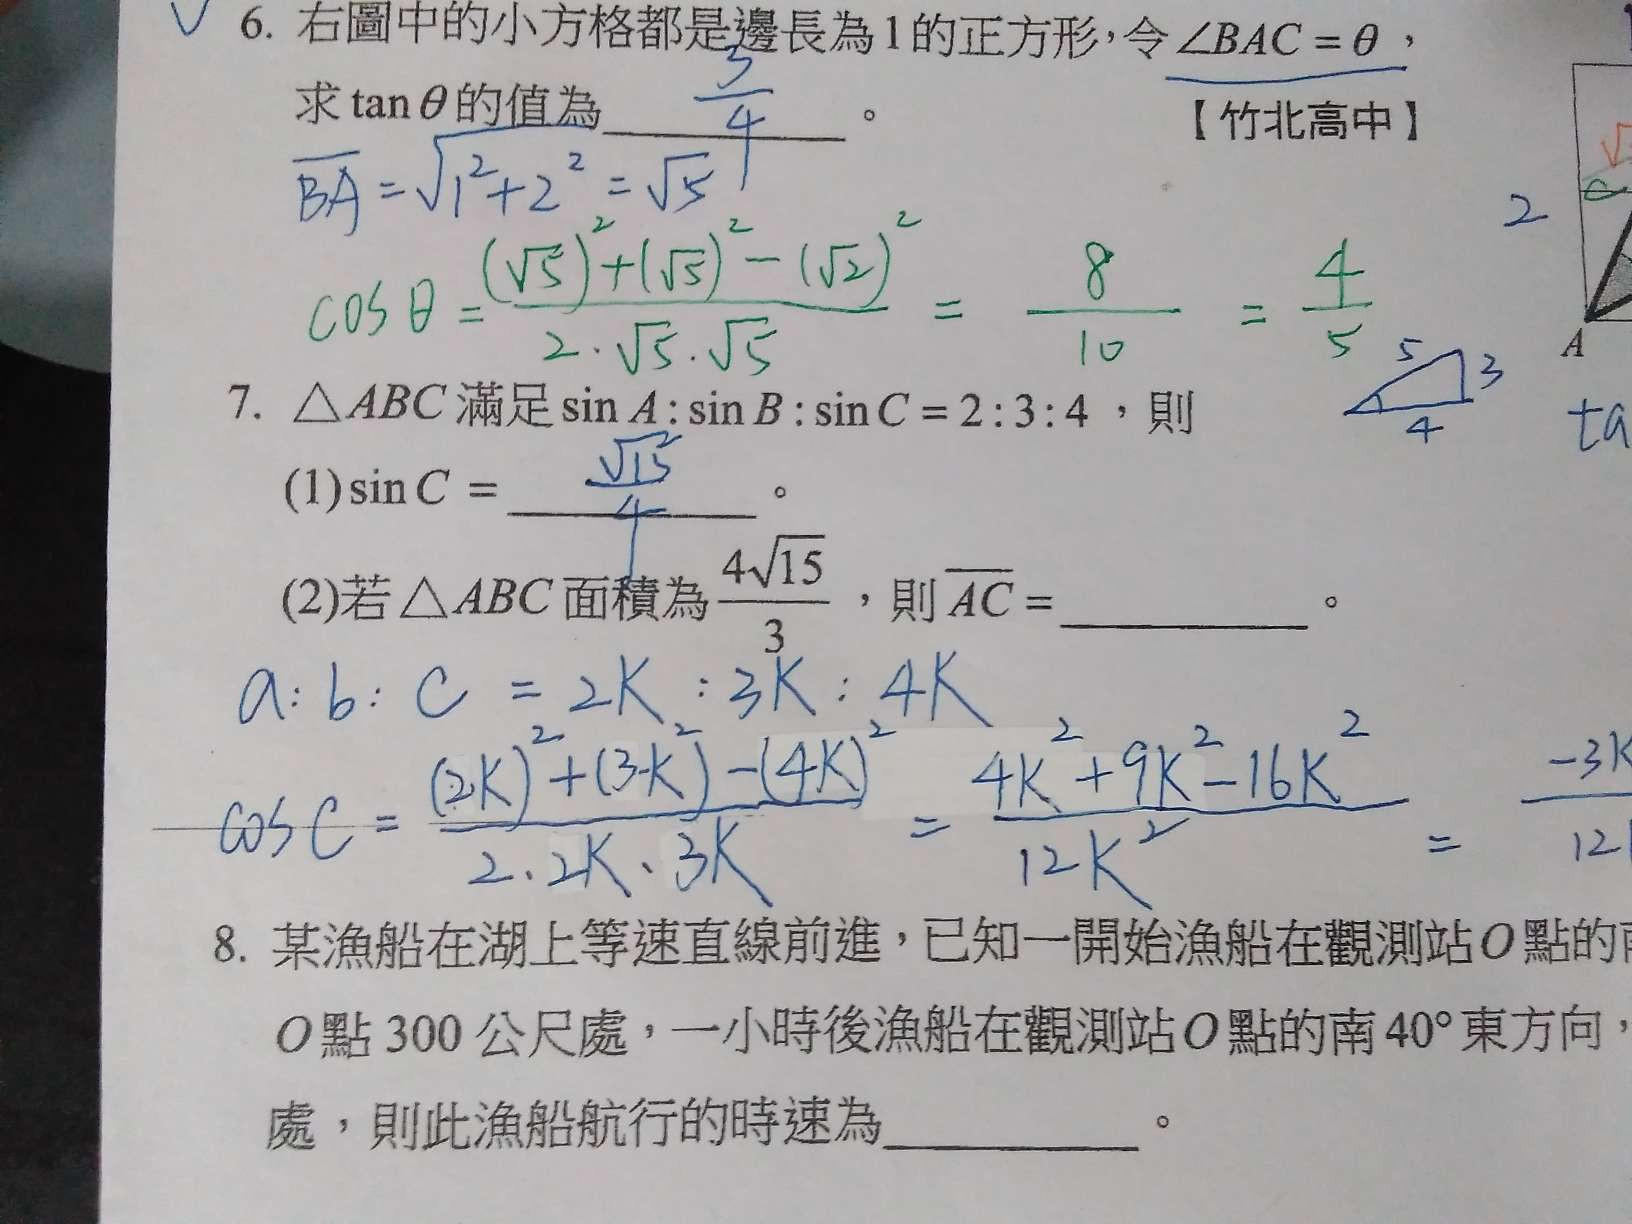 6. 右圖中的小方格都是邊長為1的正方形,令∠BAC = θ，
求 tanθ 的值為 3/4 。 【竹北高中】
BA = √1²+2² = √5
2
cosθ = (√5)²+(√5)²-(√2)² / 2·√5·√5 = 8/10 = 4/5
A
5 3 4
7. △ABC 滿足 sin A : sin B : sin C = 2 : 3 : 4 ，則
(1) sin C = √15/4 。
(2)若 △ABC 面積為 4√15/3 ，則 AC = 。
a : b : c = 2K : 3K : 4K
cos C = (2K)²+(3K²)-(4K)² / 2·2K·3K = 4K²+9K²-16K² / 12K² = -3K
8. 某漁船在湖上等速直線前進，已知一開始漁船在觀測站O點的
O點 300 公尺處，一小時後漁船在觀測站O點的南40°東方向，
處，則此漁船航行的時速為 。